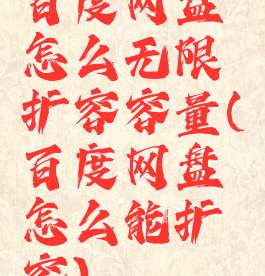 百度网盘
怎么无限
扩容容量(
百度网盘
怎么能扩
容)